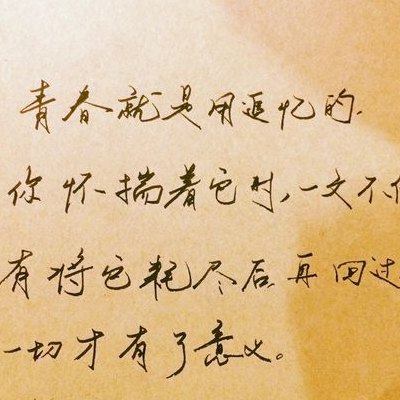 青春就是用追忆的.
你怀揣着它时,一文不
有将它耗尽后再回过
一切才有了意义。